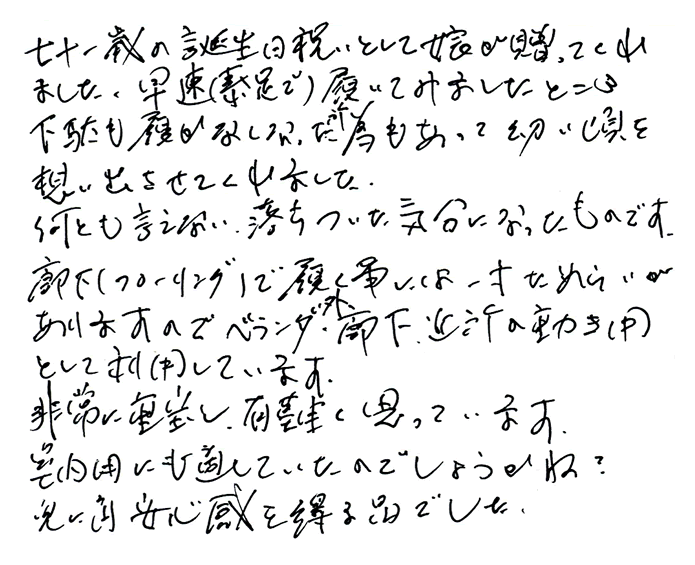 七十一歳の誕生日祝いとして娘が贈ってくれ
ました。早速(素足で)履いてみましたところ
下駄も履かなくなった所為もあって幼い頃を
想い出させてくれました。
何とも言えない落ちついた気分になったものです。
廊下(フローリング)で履く事には一寸ためらいが
ありますのでベランダ・外廊下、近所の動き(用)
として利用しています。
非常に重宝し、有難く思っています。
室内用にも適していたのでしょうかね?
兎に角安心感を得る品でした。